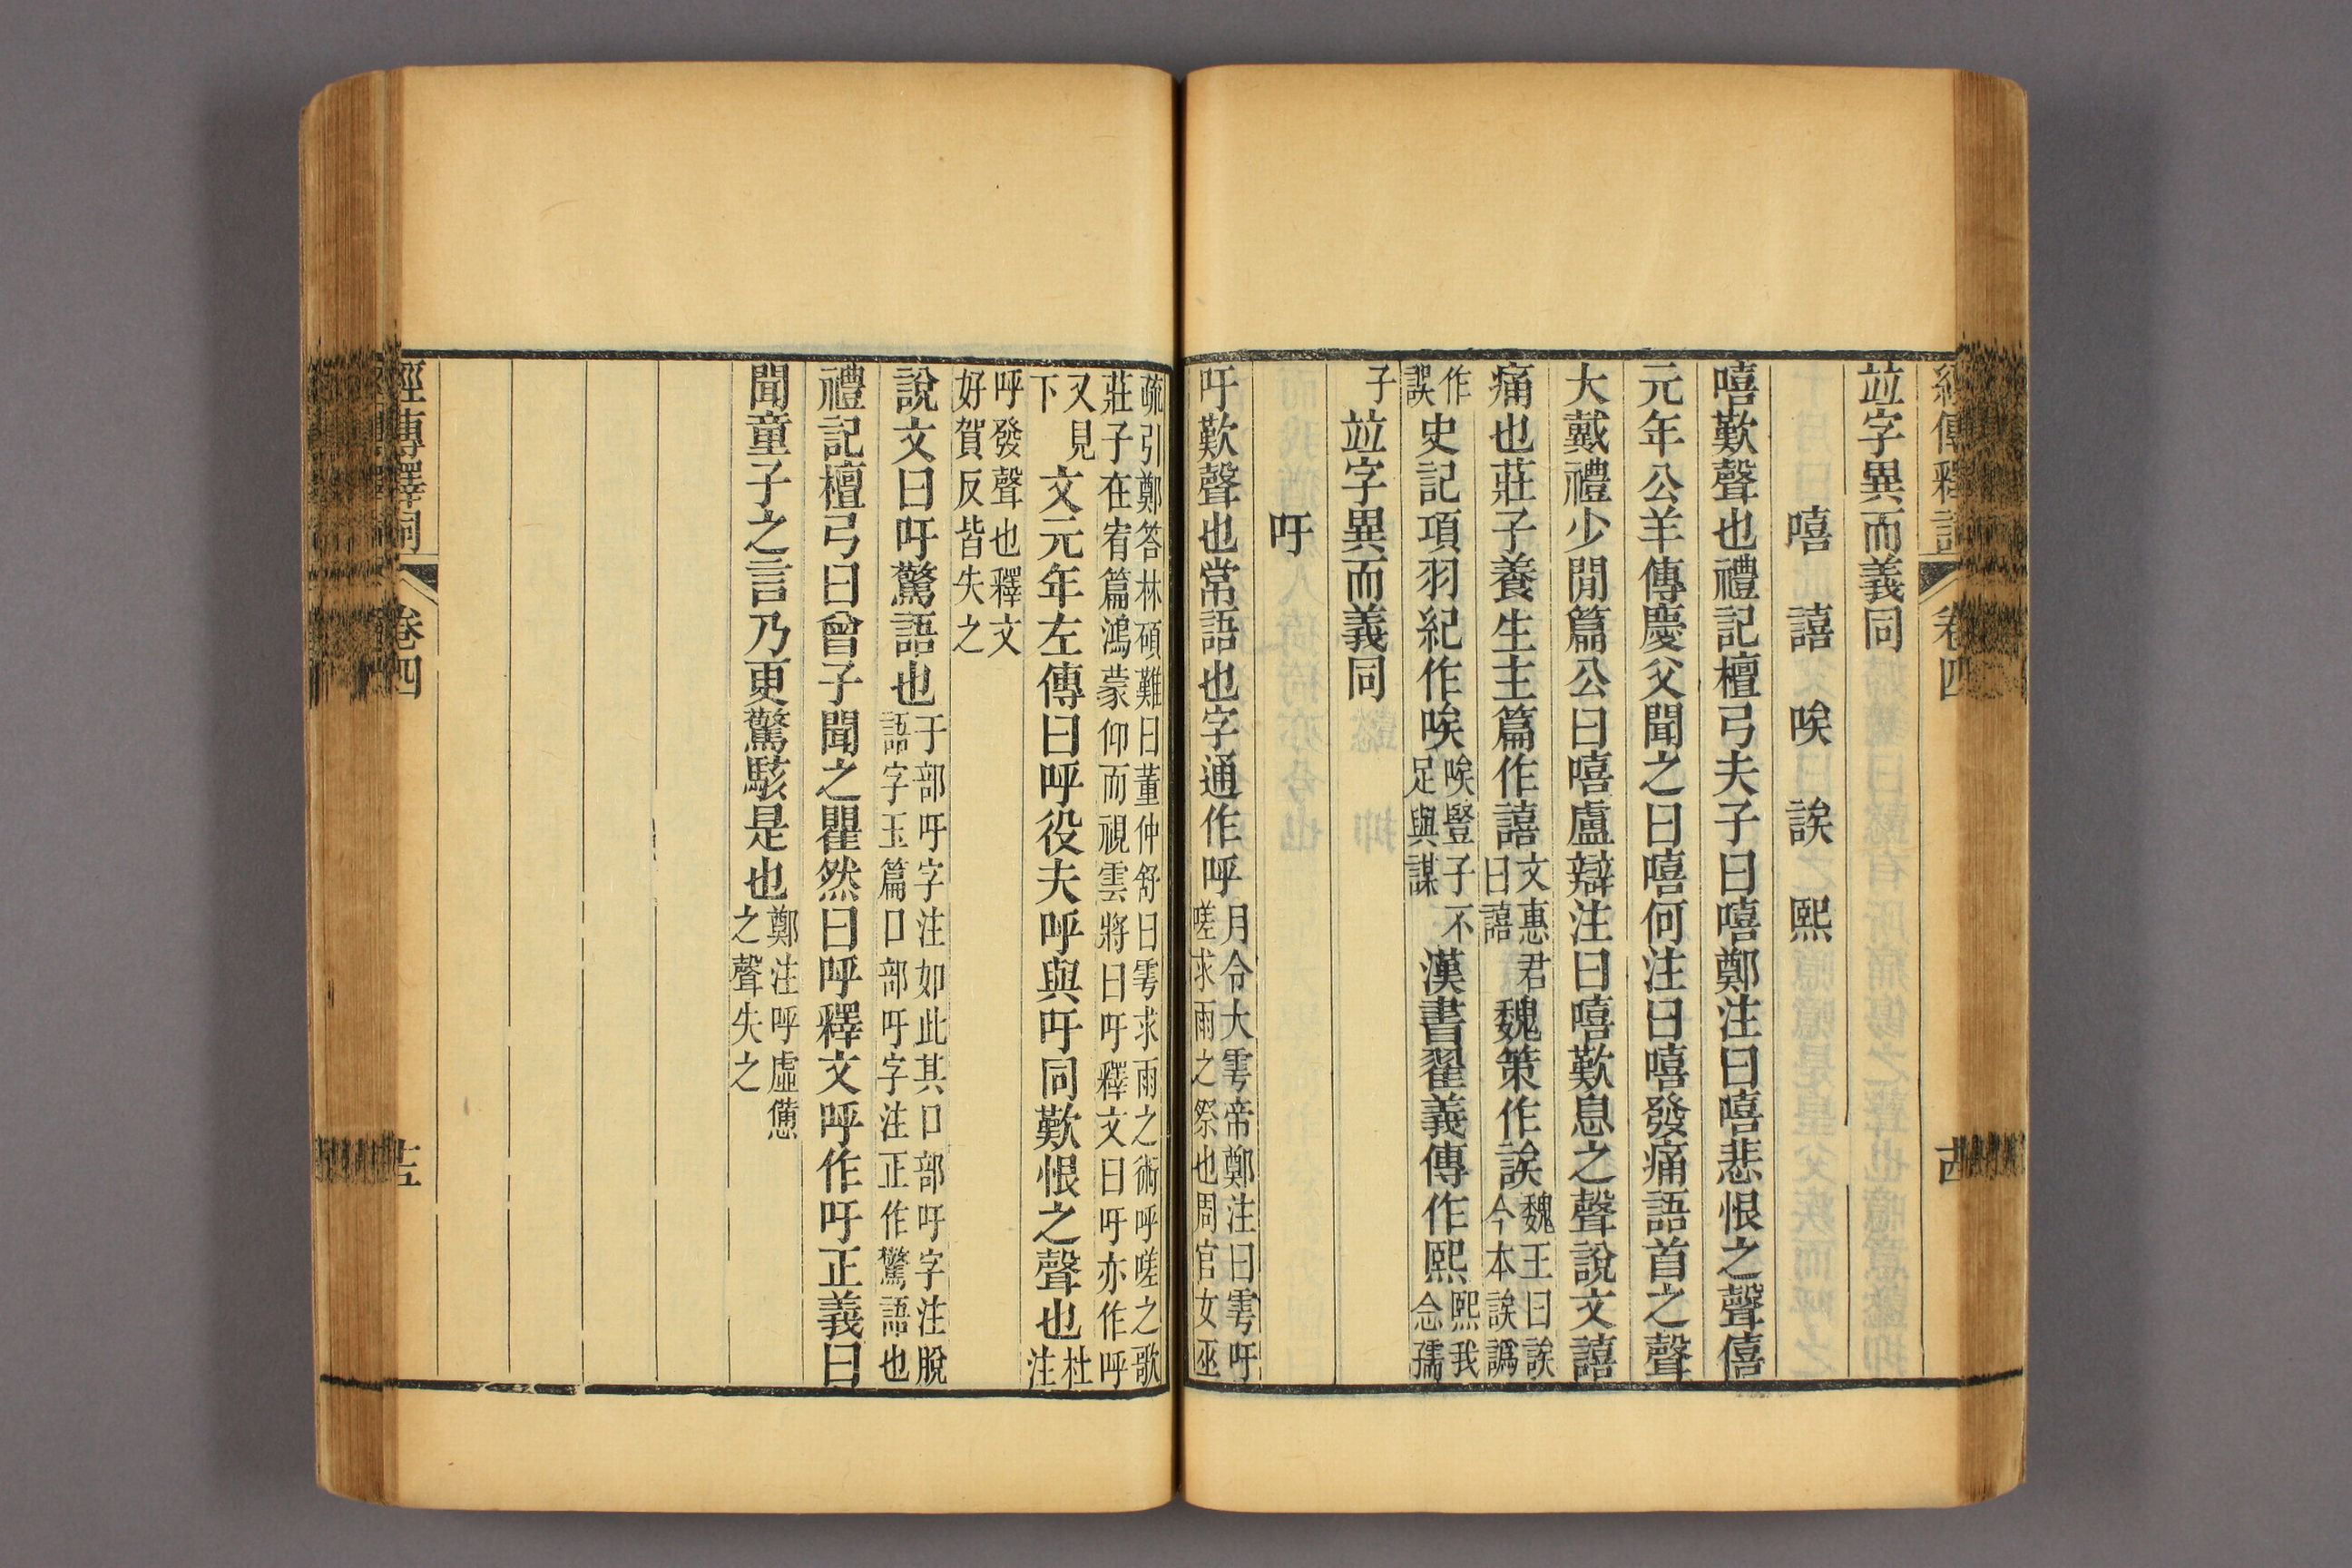 經傳釋詞 卷四 十四
竝字異而義同
嘻 譆 唉 誒 熙
嘻歎聲也禮記檀弓夫子曰嘻鄭注曰嘻悲恨之聲僖
元年公羊傳慶父聞之曰嘻何注曰嘻發痛語首之聲
大戴禮少閒篇公曰嘻盧辯注曰嘻歎息之聲說文譆
痛也莊子養生主篇作譆文惠君曰譆魏策作誒魏王曰誒今本誒譌
作誤史記項羽紀作唉唉豎子不足與謀漢書翟義傳作熙熙我念孺
子竝字異而義同
吁
吁歎聲也常語也字通作呼月令大雩帝鄭注曰雩吁嗟求雨之祭也周官女巫
疏引鄭答林碩難曰董仲舒曰雩求雨之術呼嗟之歌莊子在宥篇鴻蒙仰而視雲將曰吁釋文曰吁亦作呼
又見下文元年左傳曰呼役夫呼與吁同歎恨之聲也杜注
呼發聲也釋文好賀反皆失之
說文曰吁驚語也于部吁字注如此其口部吁字注脫語字玉篇口部吁字注正作驚語也
禮記檀弓曰曾子聞之瞿然曰呼釋文呼作吁正義曰
聞童子之言乃更驚駭是也鄭注呼虛憊之聲失之
經傳釋詞 卷四 十五